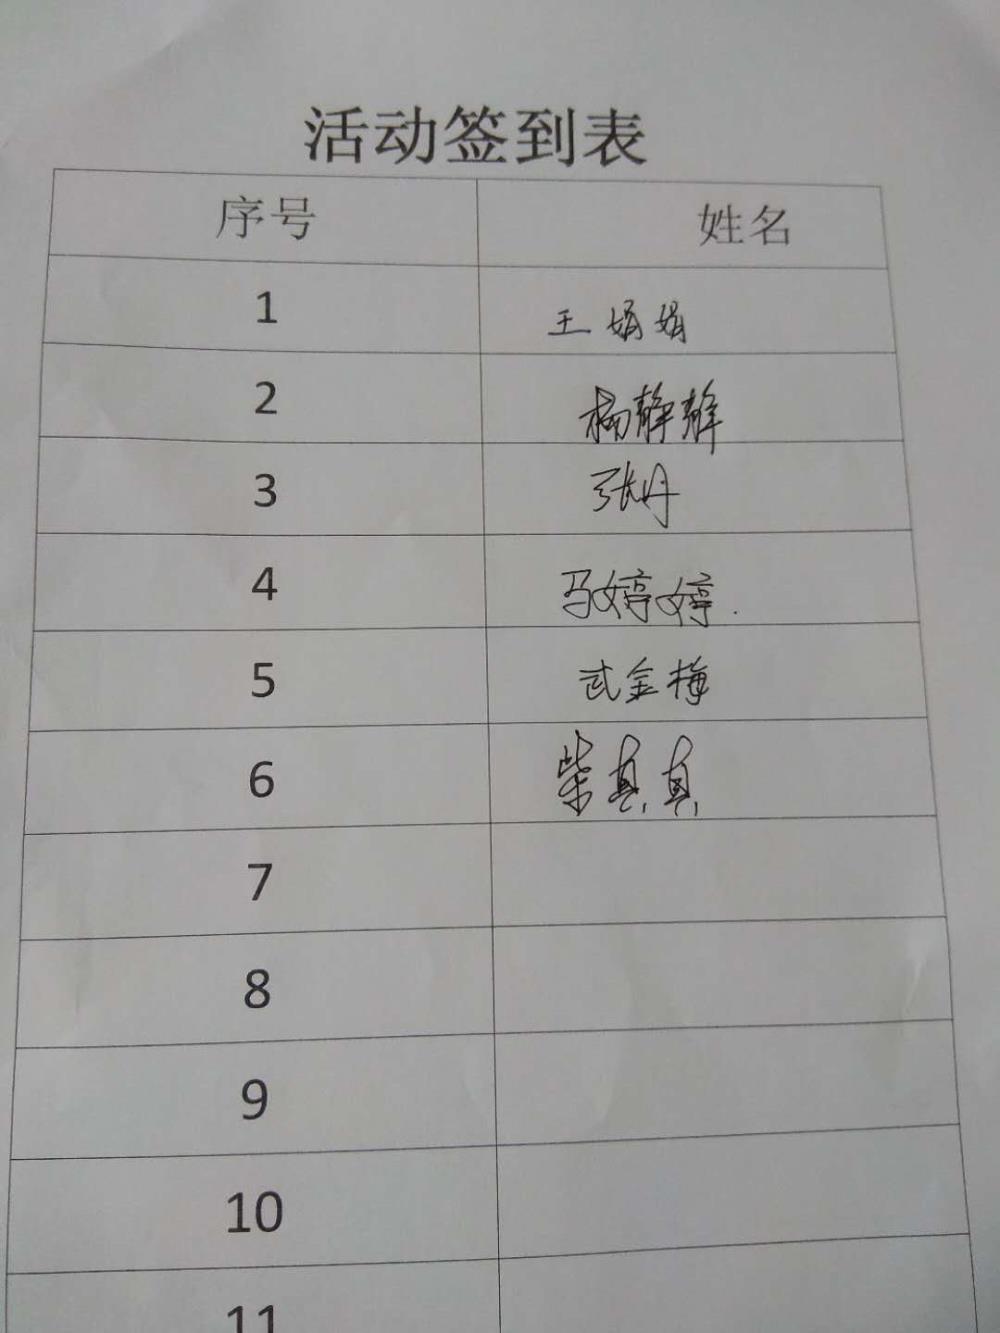 活动签到表
序号 姓名
1 王娟娟
2 杨静静
3 张丹
4 马婷婷.
5 武金梅
6 柴真真
7
8
9
10
11